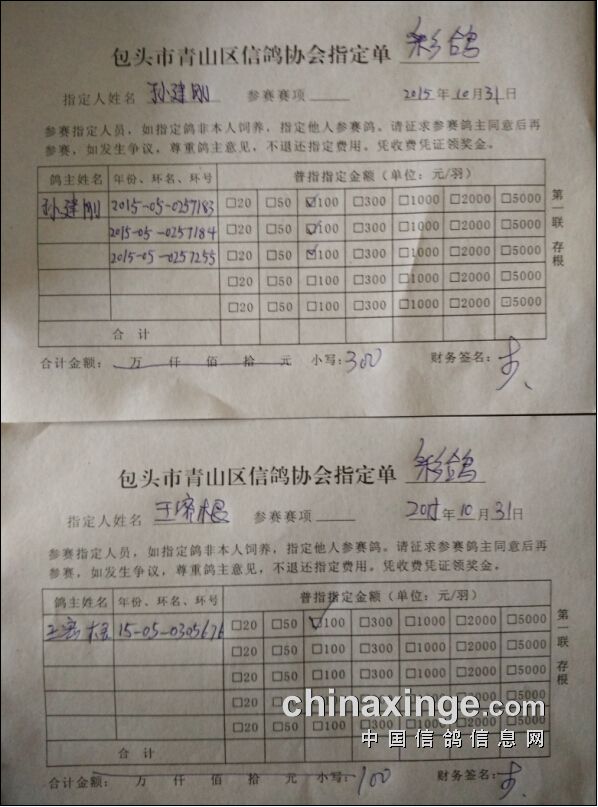 包头市青山区信鸽协会指定单 彩鸽
指定人姓名 孙建刚 参赛赛项 2015年10月31日
参赛指定人员，如指定鸽非本人饲养，指定他人参赛鸽。请征求参赛鸽主同意后再
参赛，如发生争议，尊重鸽主意见，不退还指定费用。凭收费凭证领奖金。
鸽主姓名 年份、环名、环号 普指指定金额（单位：元/羽）
孙建刚 2015-05-0257183 □20 □50 ☑100 □300 □1000 □2000 □5000
2015-05-0257184 □20 □50 ☑100 □300 □1000 □2000 □5000
2015-05-0257255 □20 □50 ☑100 □300 □1000 □2000 □5000
□20 □50 □100 □300 □1000 □2000 □5000
□20 □50 □100 □300 □1000 □2000 □5000
合 计
第一联 存根
合计金额： 万 仟 佰 拾 元 小写:300 财务签名：
包头市青山区信鸽协会指定单 彩鸽
指定人姓名 王 根 参赛赛项 2015年10月31日
参赛指定人员，如指定鸽非本人饲养，指定他人参赛鸽。请征求参赛鸽主同意后再
参赛，如发生争议，尊重鸽主意见，不退还指定费用。凭收费凭证领奖金。
鸽主姓名 年份、环名、环号 普指指定金额（单位：元/羽）
王 根 15-05-0305676 □20 □50 ☑100 □300 □1000 □2000 □5000
□20 □50 □100 □300 □1000 □2000 □5000
□20 □50 □100 □300 □1000 □2000 □5000
□20 □50 □100 □300 □1000 □2000 □5000
□20 □50 □100 □300 □1000 □2000 □5000
合 计
第一联 存根
合计金额： 万 仟 佰 拾 元 小写:100 财务签名：
chinaxinge.com
中国信鸽信息网